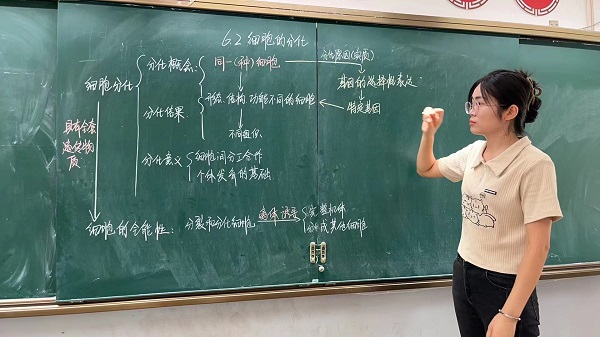 6.2 细胞的分化
细胞分化
分化概念:
同一(种)细胞
分化原因(实质)
基因的选择性表达
特定基因
形态、结构、功能不同的细胞
分化结果:
不同组织
分化意义
细胞间分工合作
个体发育的基础
具有全套遗传物质
细胞的全能性:
分裂和分化细胞
离体 诱导
完整机体
分化成其他细胞